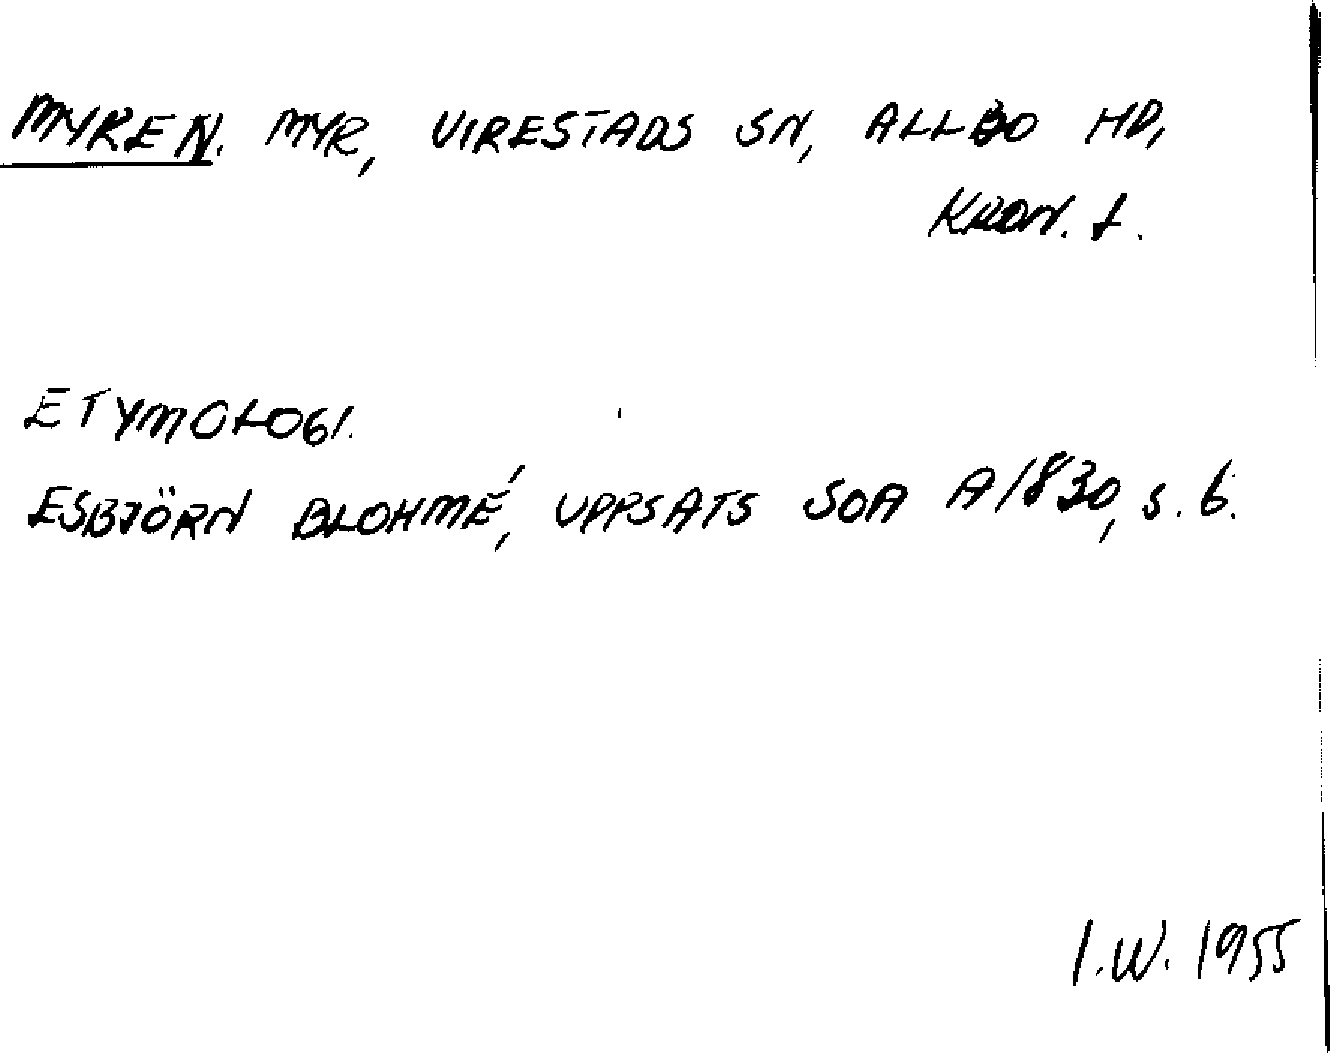 MYREN. MYR, VIRESTADS SN, ALLBO HD,
KRON. L.
ETYMOLOGI.
ESBJÖRN BLOHMÉ, UPPSATS SOA A1830, S. 6.
I.W. 1955